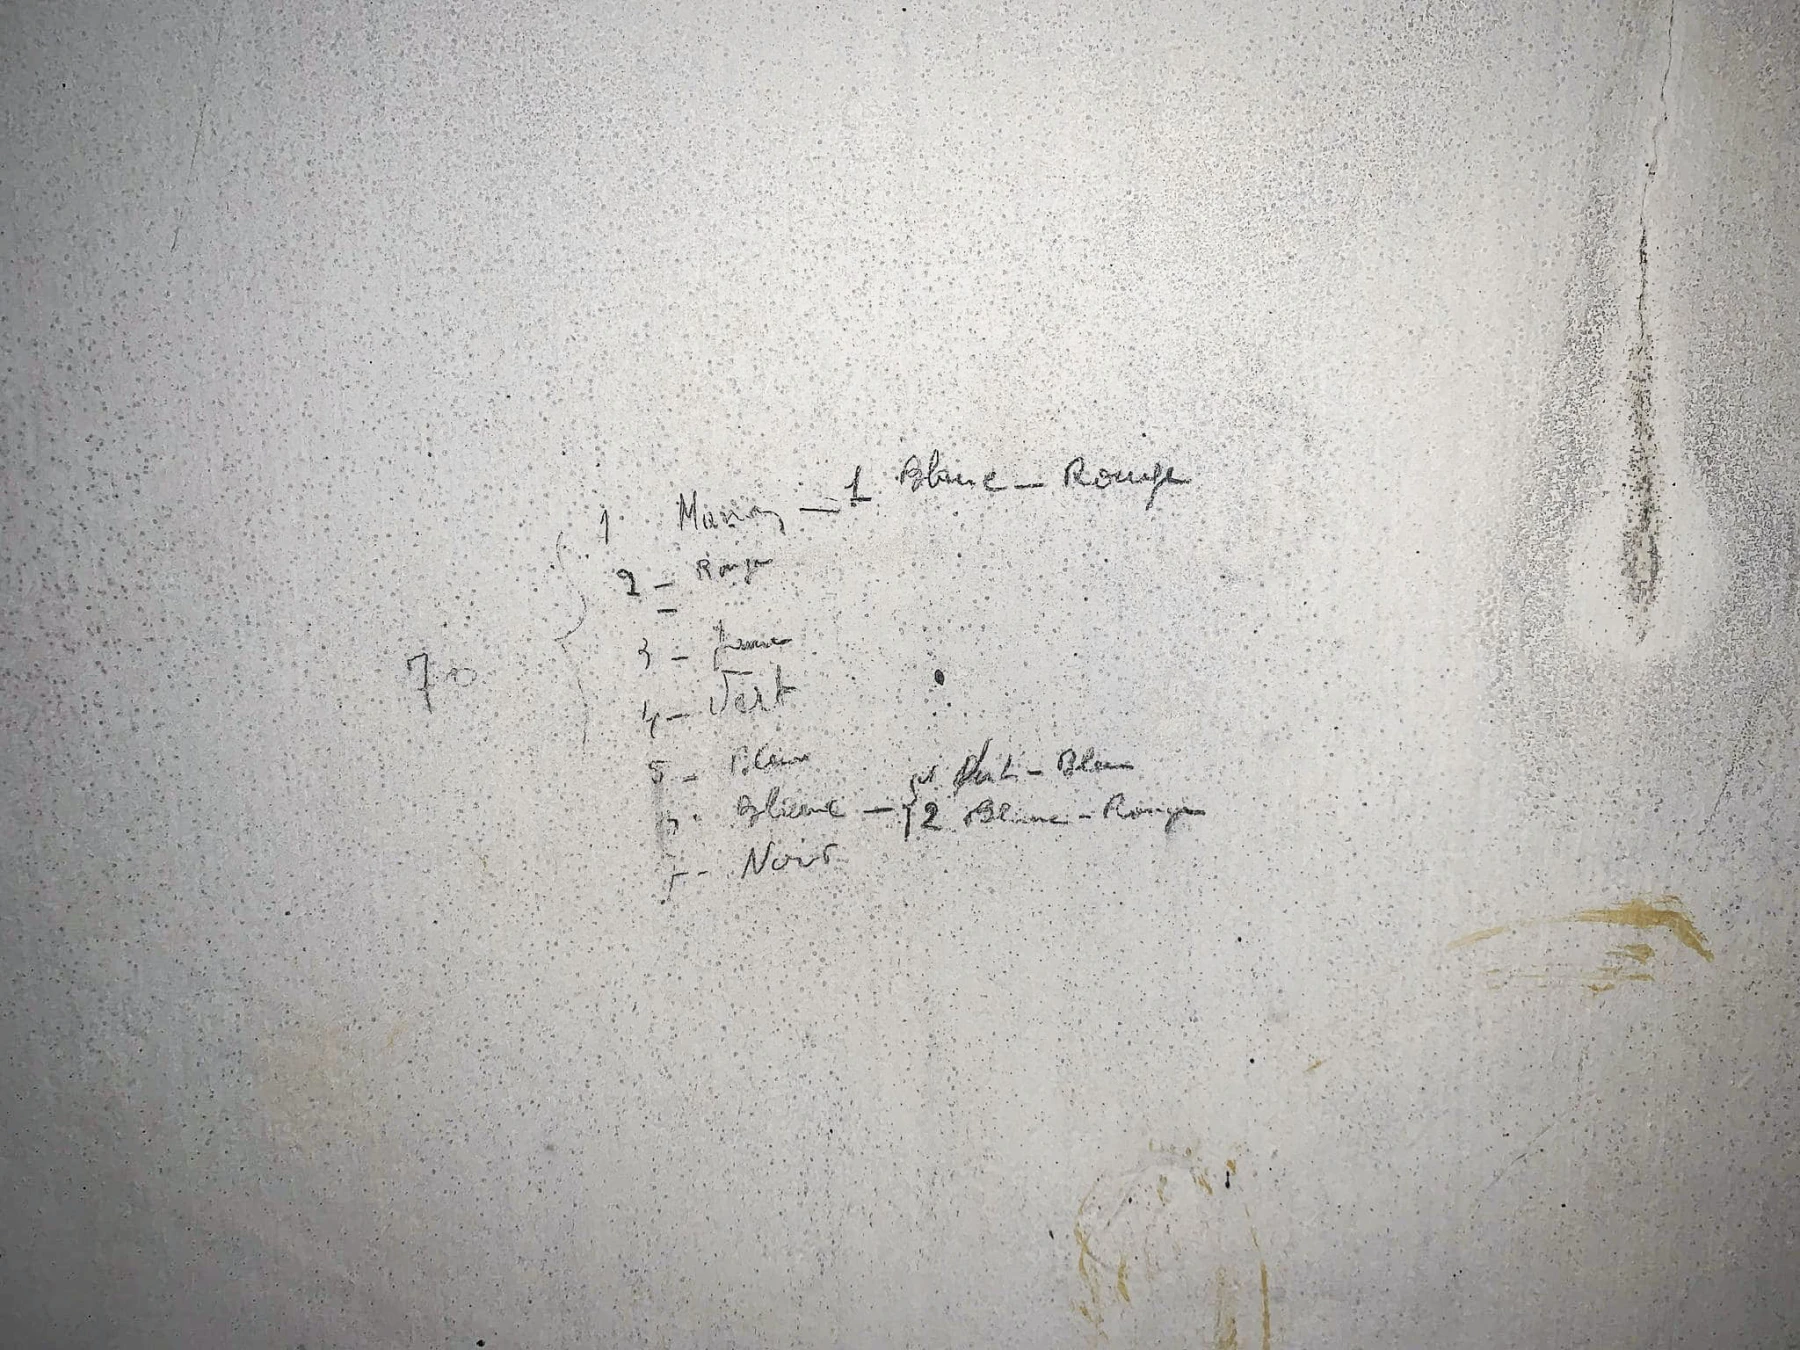 1 Marron — 1 Blanc — Rouge
2 — Rouge
3 — Jaune
70
4 — Vert
5 — Bleu
Bleu
6 - Blanc — 2 Blanc - Rouge
7 - Noir